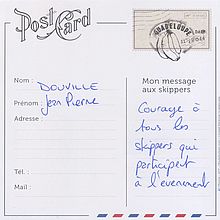 Post Card
GUADELOUPE
Nom : DOUVILLE
Prénom : Jean Pierre
Adresse :
Tel. :
Mail :
Mon message
aux skippers
Courage à
tous les
skippers qui
participent
à l'évenement